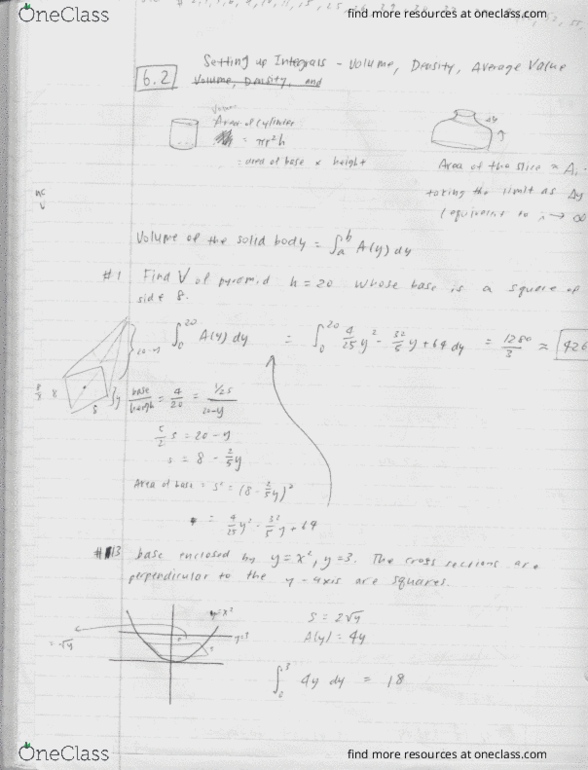 OneClass
find more resources at oneclass.com
6.2
Setting up Integrals - Volume, Density, Average Value
Volume, Density, and
Volume
Area of Cylinder
= πr²h
= area of base × height
Δy
Area of the slice ≈ A
taking the limit as Δy
(equivalent to n → ∞
Volume of the solid body = ∫_a^b A(y) dy
#1 Find V of pyramid h = 20 whose base is a square of
side 8.
∫_0^20 A(y) dy = ∫_0^20 4/25 y² - 32/5 y + 64 dy = 1280/3 ≈ 426
20-y
8
s
y
base/height = 4/20 = 1/2s/20-y
5/2 s = 20 - y
s = 8 - 2/5 y
Area of base = s² = (8 - 2/5 y)²
= 4/25 y² - 32/5 y + 64
#13 base enclosed by y = x², y = 3. The cross sections are
perpendicular to the y-axis are squares.
y=x²
y=3
= √y
S = 2√y
A(y) = 4y
∫_0^3 4y dy = 18
OneClass
find more resources at oneclass.com